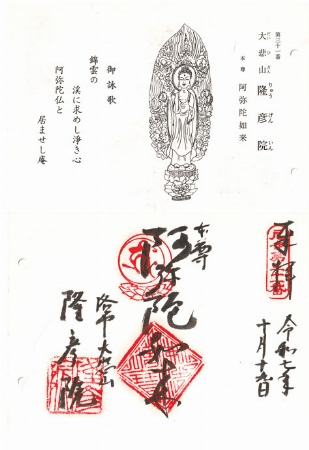 第三十一番
大悲山 隆彦院
だいひざん りゅうげんいん
本尊 阿弥陀如来
御詠歌
錦雲の
渓に求めし浄き心
阿弥陀仏と
居ませし庵
奉拝
令和七年
十月十九日
本尊
阿弥陀如来
大悲山
隆彦院